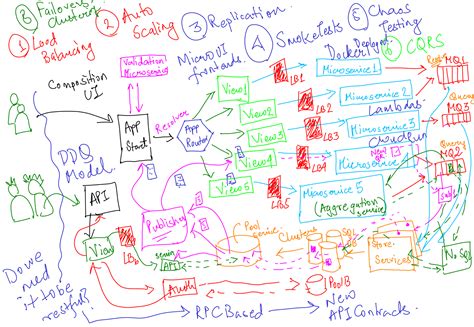 ⑧ Failovers
clustering
① Load
Balancing
② Auto
Scaling
③ Replication
④ Smoke Tests
⑤ Chaos
Testing
⑥ CQRS
Composition
UI
Validation
Microservice
Micro UI
frontends
Docker Deployment
Resolver
App
Start
App
Router
View1
View2
View3
View4
View5
LB1
LB2
LB3
LB4
LB5
LB6
Microservice1
Microservice2
Microservice3
Microservice
Microservice 5
Lambdas
(Aggregation
service)
MQ1
Query
MQ2
DDD
Model
API
View
Publisher
API
Auth
Pool
service
Clusters
SQL
DB
Store
Services
No SQL
Pool B
Do we
need
it to be
restful?
RPC Based
New
API Contracts